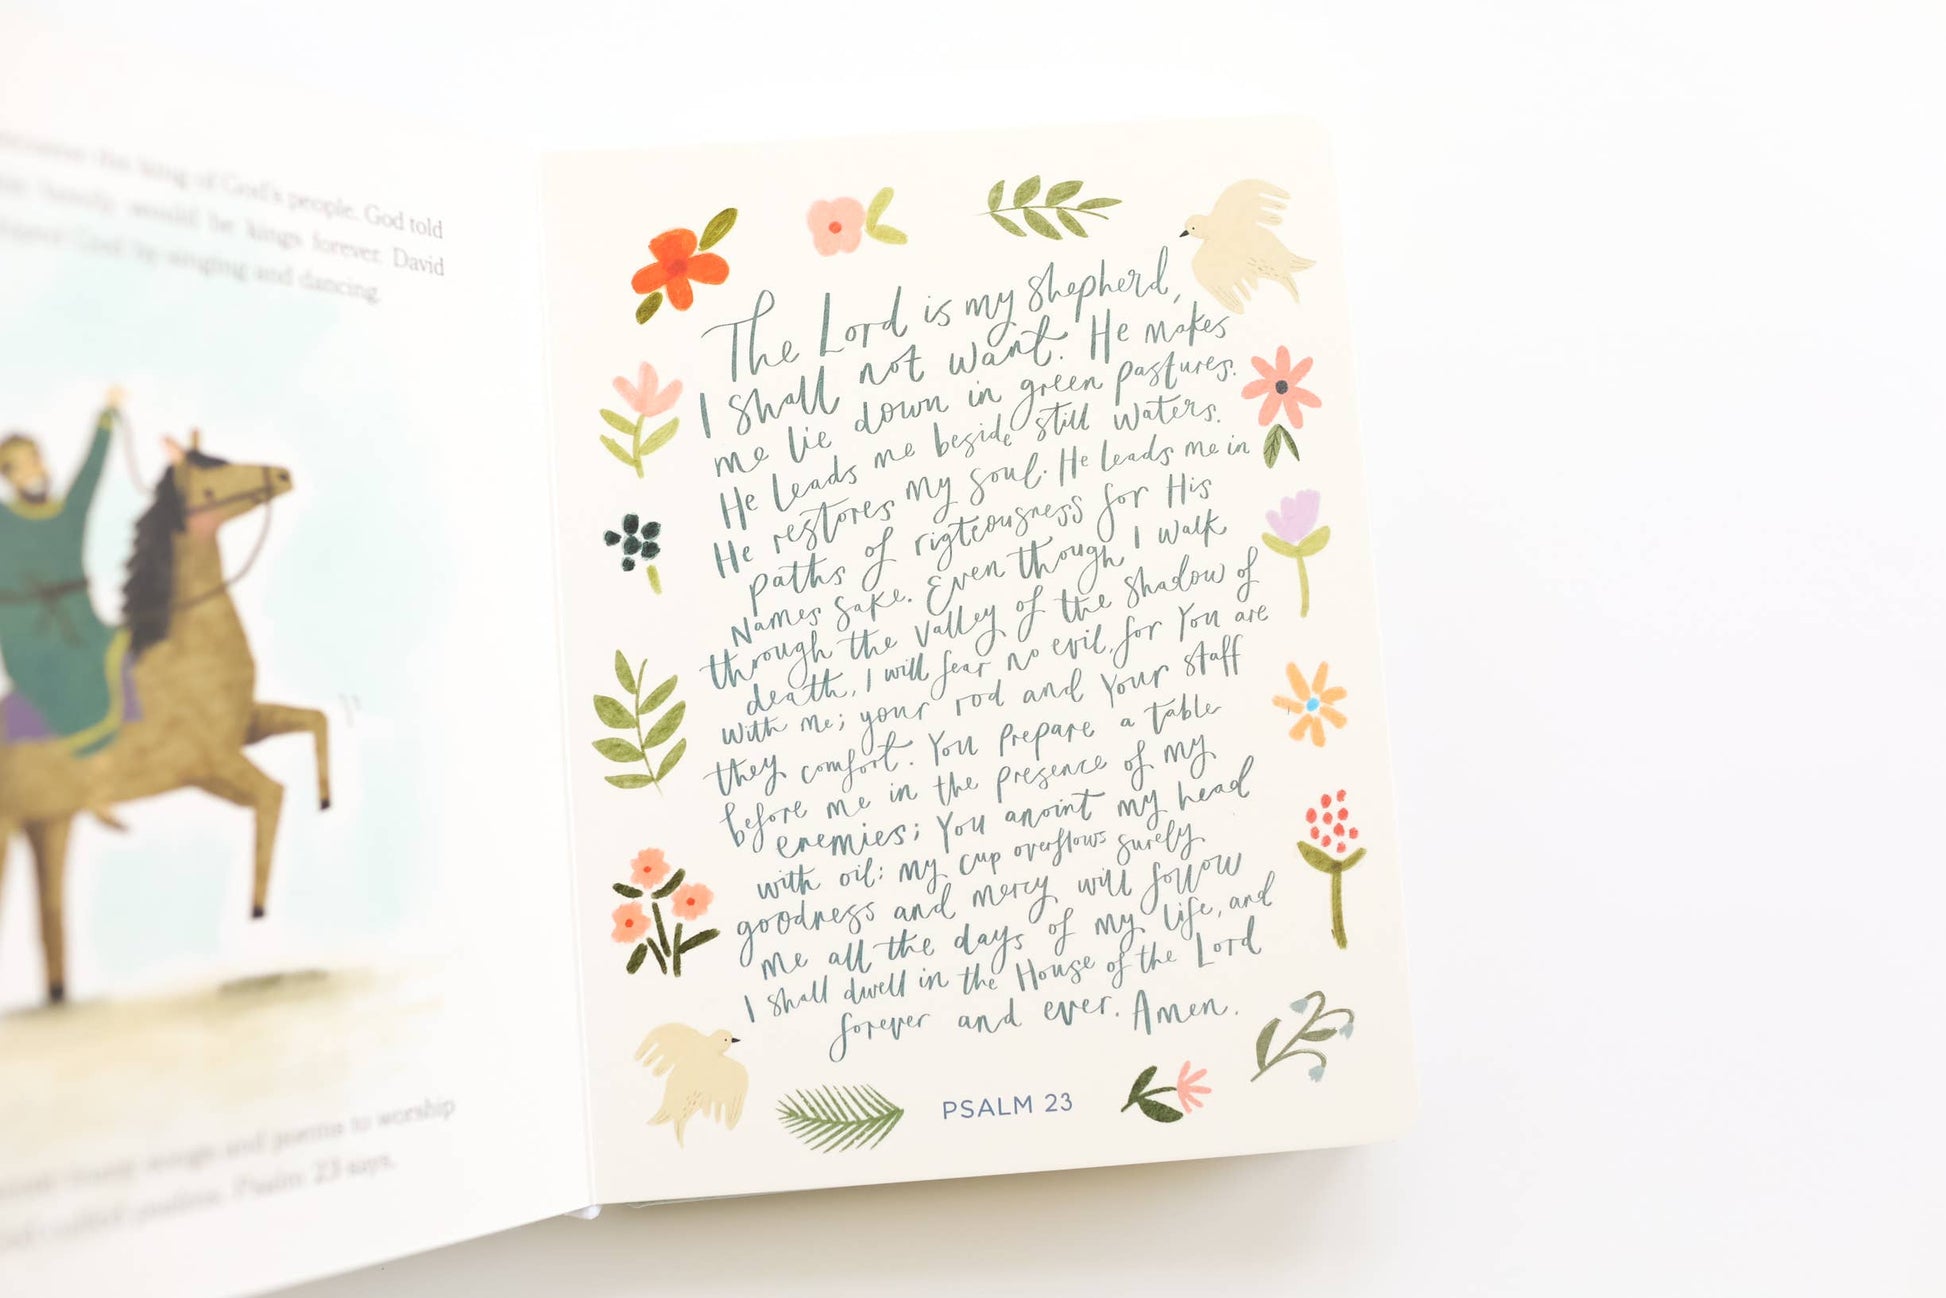 the king of God's people. God told
family would be kings forever. David
God by singing and dancing.
many songs and poems to worship
called psalms. Psalm 23 says,
The Lord is my shepherd,
I shall not want. He makes
me lie down in green pastures.
He leads me beside still waters.
He restores my soul. He leads me in
paths of rigteousness for His
Names sake. Even though I walk
through the valley of the shadow of
death, I will fear no evil, for You are
with me; your rod and Your staff
they comfort. You prepare a table
before me in the presence of my
enemies; You anoint my head
with oil: my cup overflows surely
goodness and mercy will follow
me all the days of my life, and
I shall dwell in the House of the Lord
forever and ever. Amen.
PSALM 23